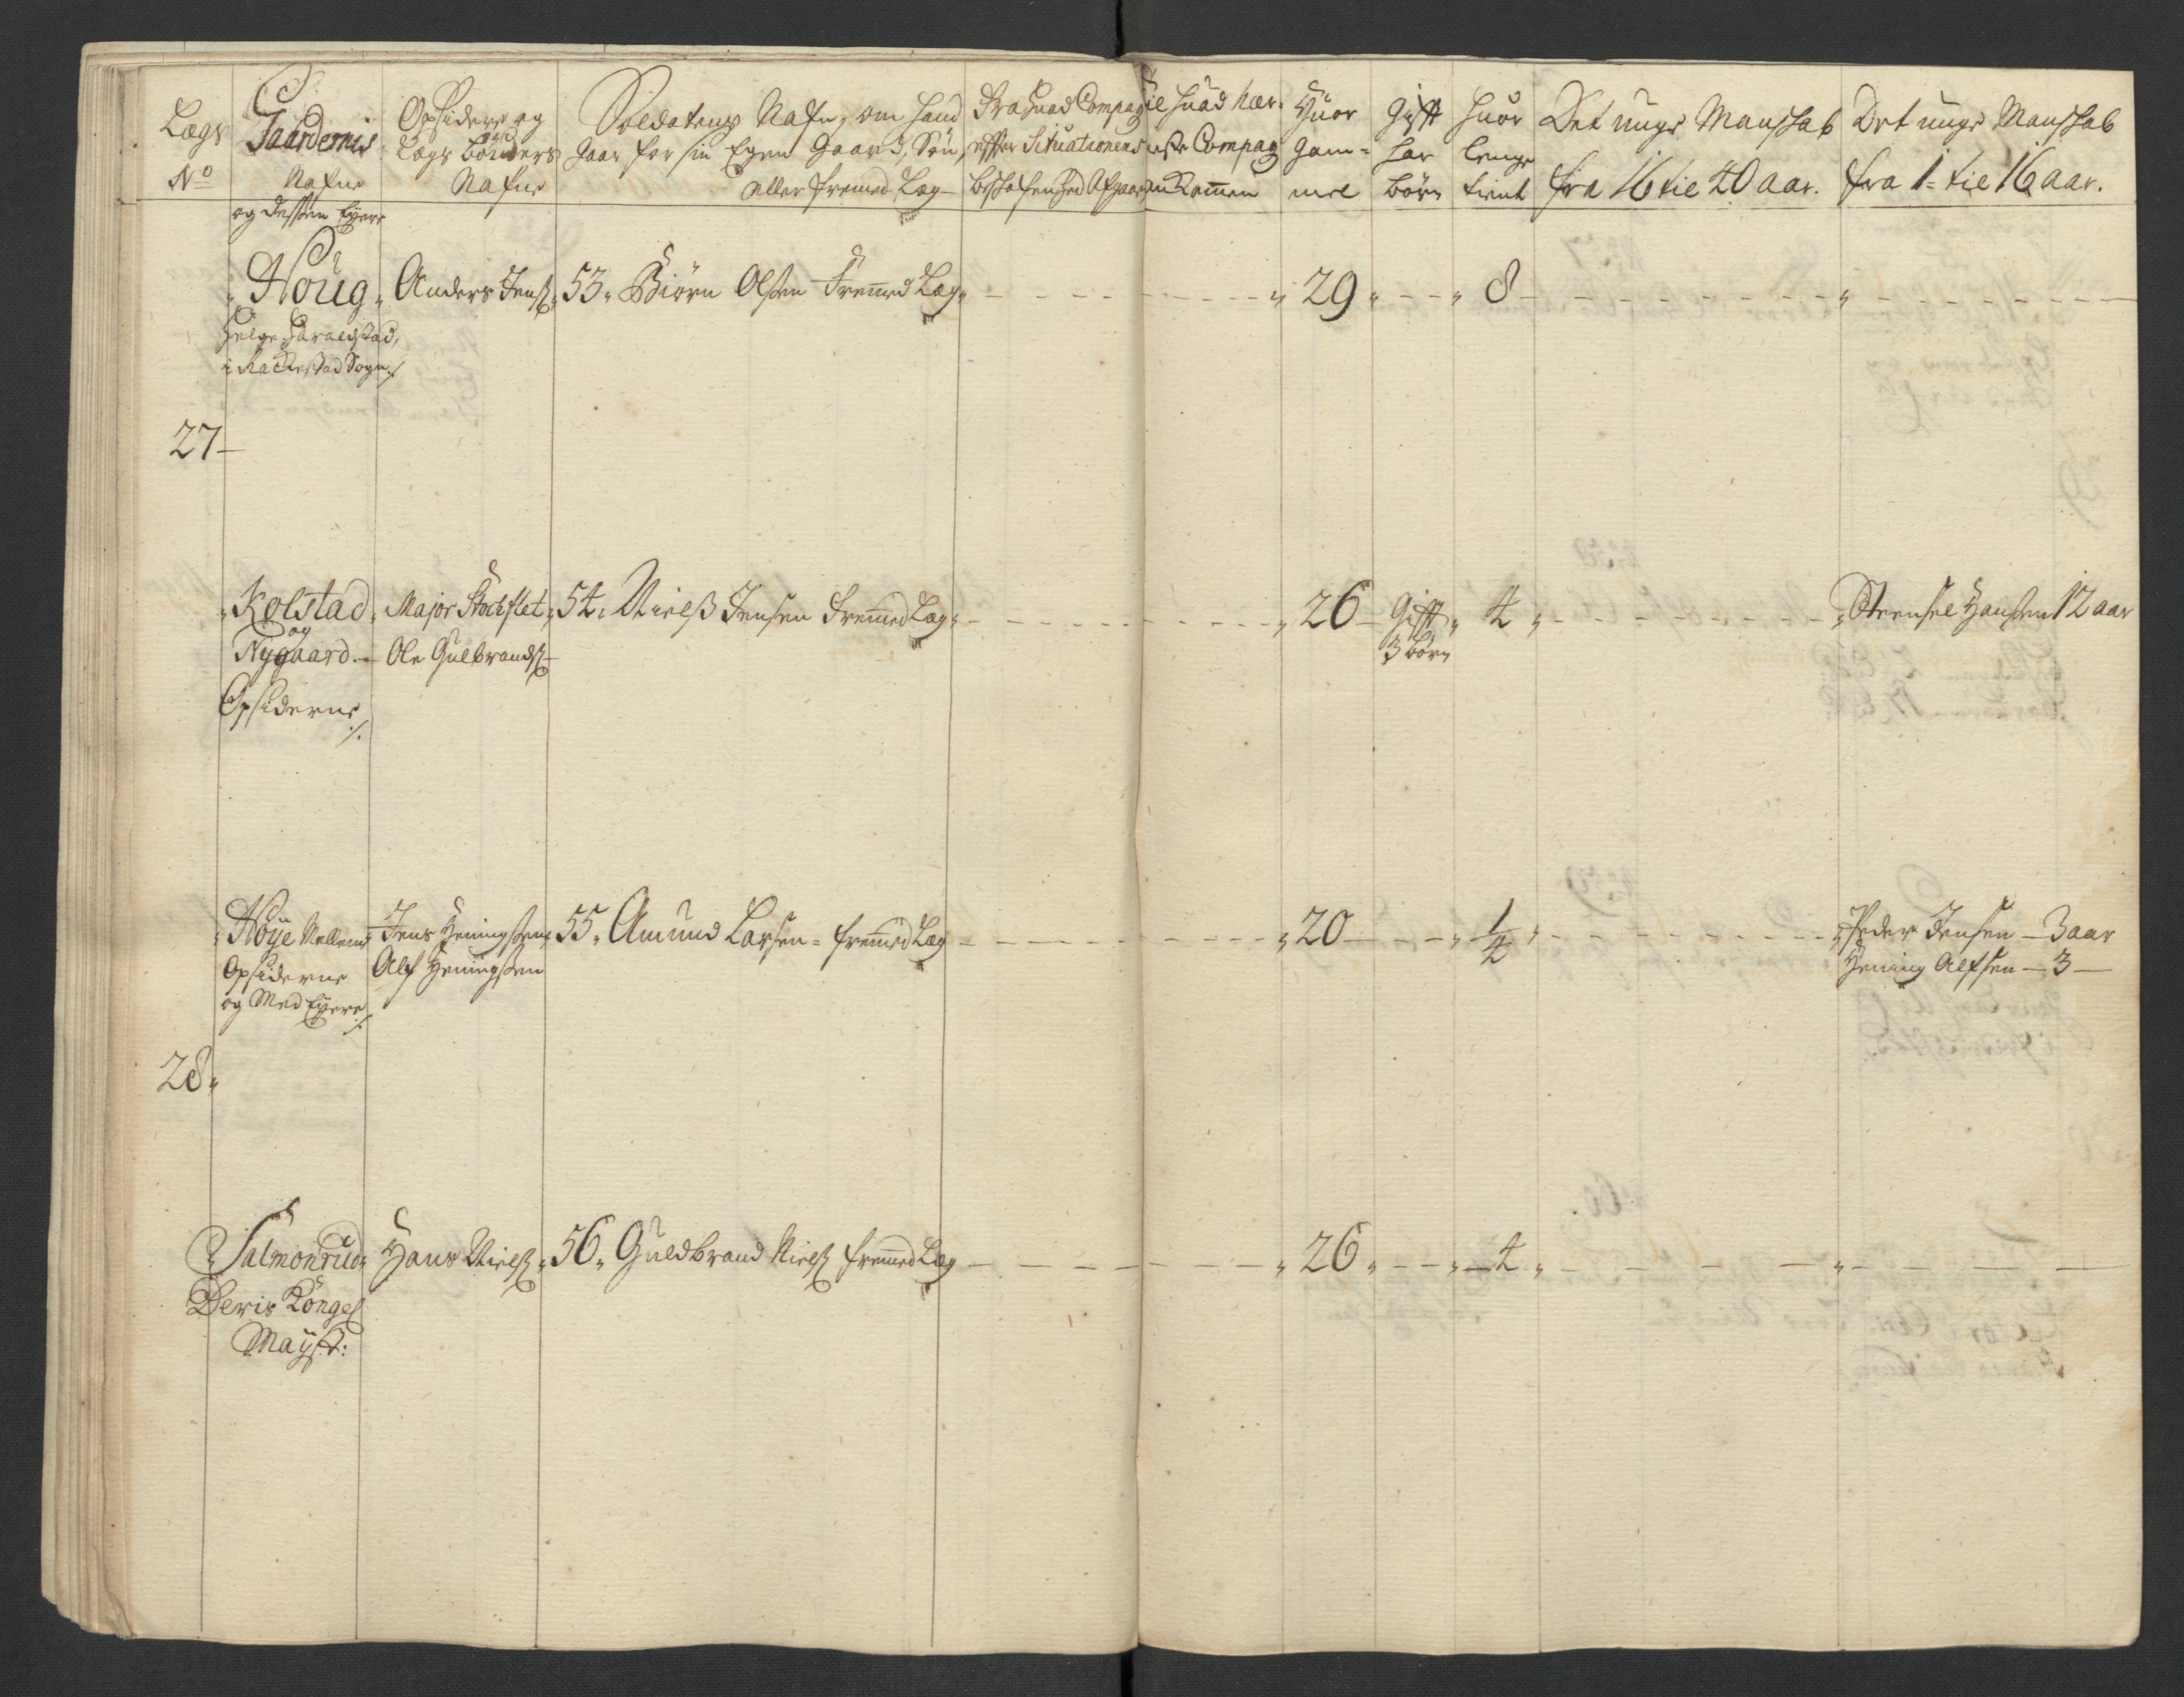 Lægs
No
Gaardernis
Nafne
og dessen Eyere
Opsidere og
Lægs Bönders
Nafne
Soldatens Nafn, om hand
gaar for sin Egen Gaard, Sön,
eller fremed Læg
Fra huad Compag
effter Situationens
beskafenhed Afgaar
Til huad nær-
este Compag
Huor
gam-
mel
Gifft
har
börn
huor
lenge
tient
Det unge Manskab
fra 16 til 20 aar.
Det unge Manskab
fra 1 = til 16 aar.
27
Houg
Helge Haraldstad,
i Rackestad Sogn ./.
Anders Jenß
53. Biörn Olsen Fremed Læg
29
8
Kolstad
og
Nygaard
Opsiderne ./.
Major Stockflet
Ole Gulbrandß
54. Nielß Jensen Fremed Læg
26
Gifft
3 börn
4
Hansen 12 aar
28
Höye Mellem
Opsiderne
og Med Eyere ./.
Jens Heningsen
Alf Heningsen
55. Amund Larsen = fremed Læg
20
1/4
Peder Jensen 3 aar
Hening Alfsen 3
Salmonrud
Deris Konges
Mayst:
Hans Nielß
56. Guldbrand Nielß fremed Læg
26
4